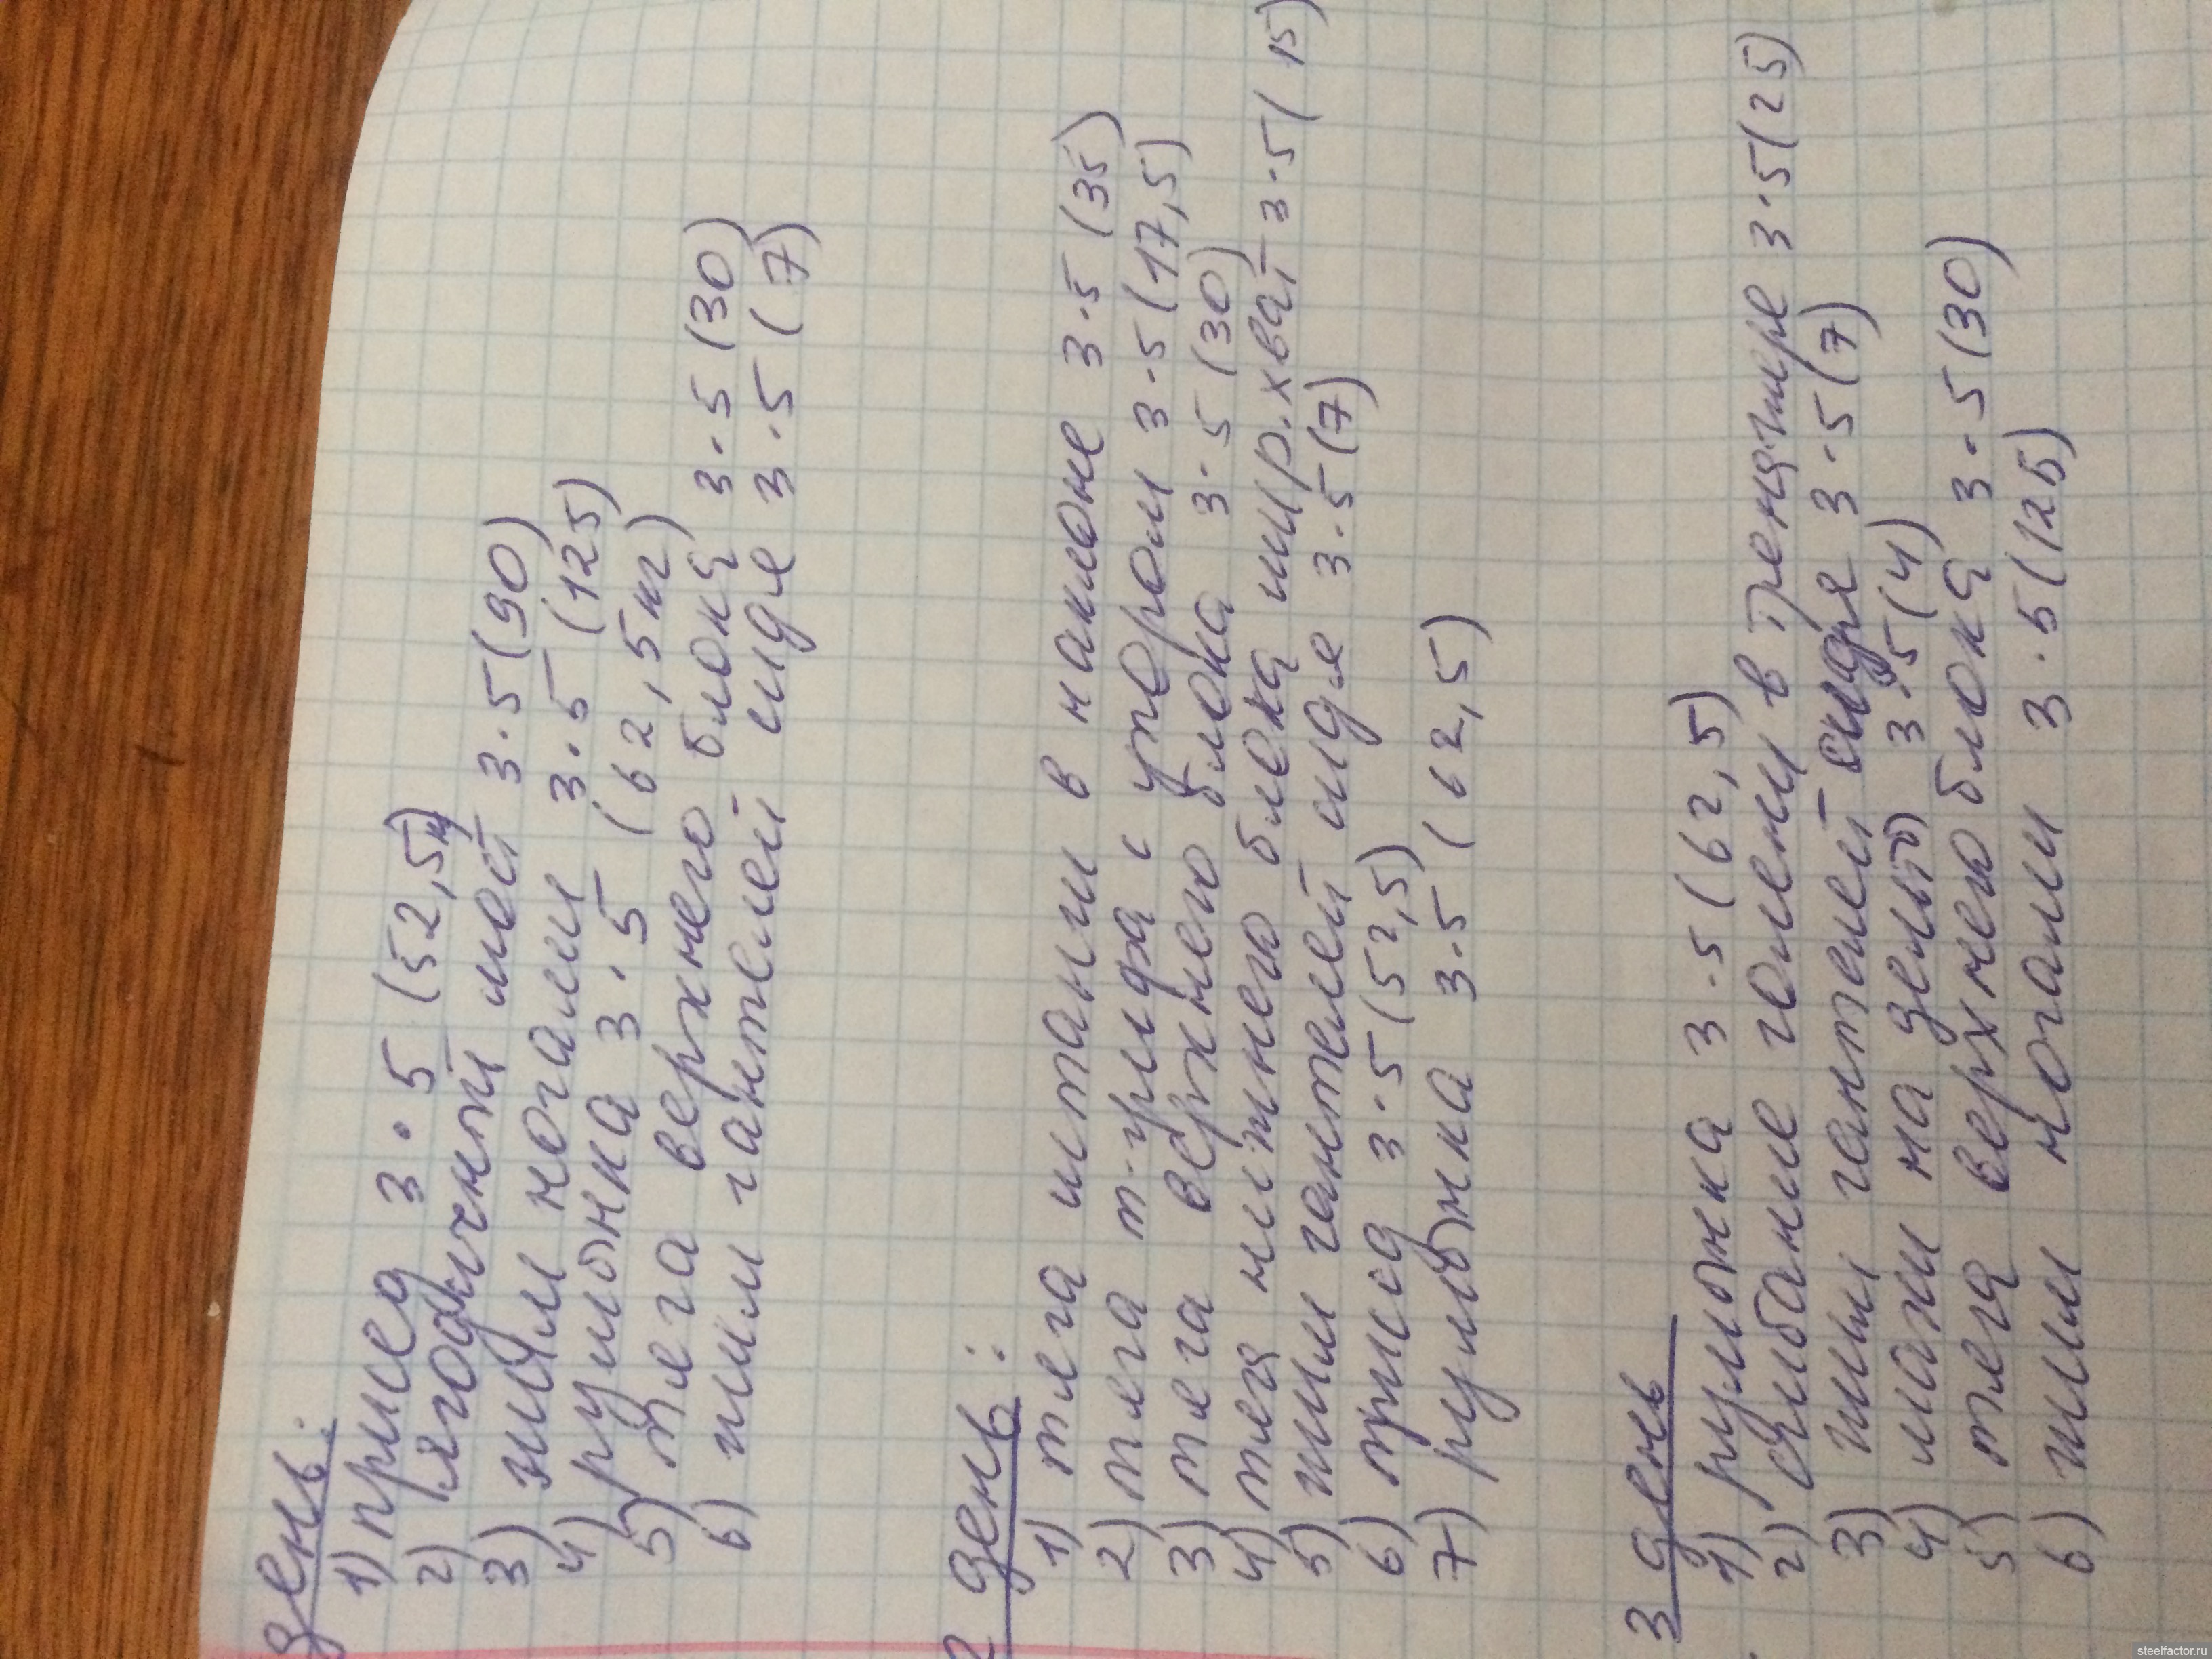 день:
1) присед 3·5 (52,5кг)
2) ягодичный мост 3·5 (90)
3) жим ногами 3·5 (125)
4) румынка 3·5 (62,5кг)
5) тяга верхнего блока 3·5 (30)
6) жим гантелей сидя 3·5 (7)
2 день:
1) тяга штанги в наклоне 3·5 (35)
2) тяга т-грифа с упором 3·5 (17,5)
3) тяга верхнего блока 3·5 (30)
4) тяга нижнего блока шир. хват 3·5 (15)
5) жим гантелей сидя 3·5 (7)
6) присед 3·5 (52,5)
7) румынка 3·5 (62,5)
3 день
1) румынка 3·5 (62,5)
2) сгибание голени в тренажере 3·5 (25)
3) жим гантелей сидя 3·5 (7)
4) махи на дельт 3·5 (4)
5) тяга верхнего блока 3·5 (30)
6) жим ногами 3·5 (125)
steelfactor.ru